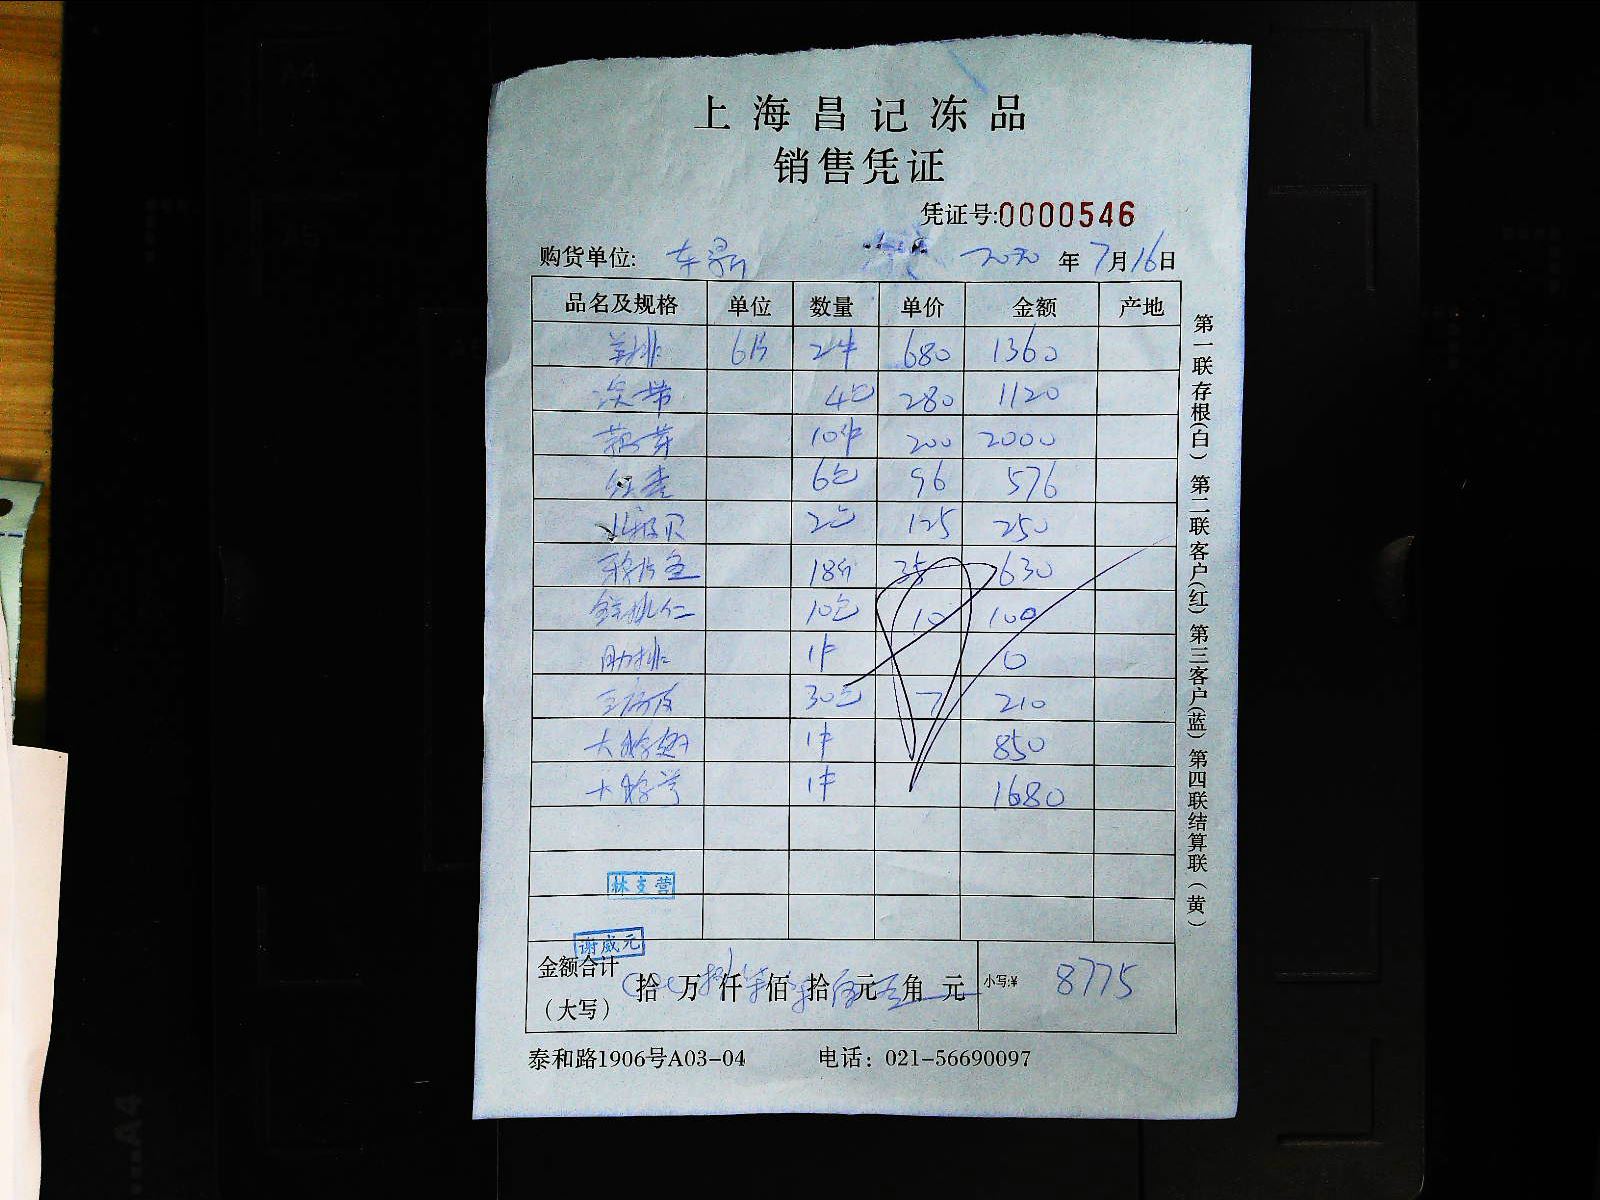 上海昌记冻品
销售凭证
凭证号:0000546
购货单位: 2020 年 7月16日
品名及规格 单位 数量 单价 金额 产地
羊排 6片 2件 680 1360
4包 280 1120
10件 200 2000
6包 96 576
北极贝 2包 125 250
18 35 630
核桃仁 10包 10 100
肋排 1件 0
30包 7 210
大 翅 1件 850
大 1件 1680
林支营
谢威元
金额合计
(大写)
拾 万 仟 佰 拾 元 角 元 小写:¥ 8775
泰和路1906号A03-04 电话: 021-56690097
第一联存根(白) 第二联客户(红) 第三客户(蓝) 第四联结算联(黄)
A4
A5
A4